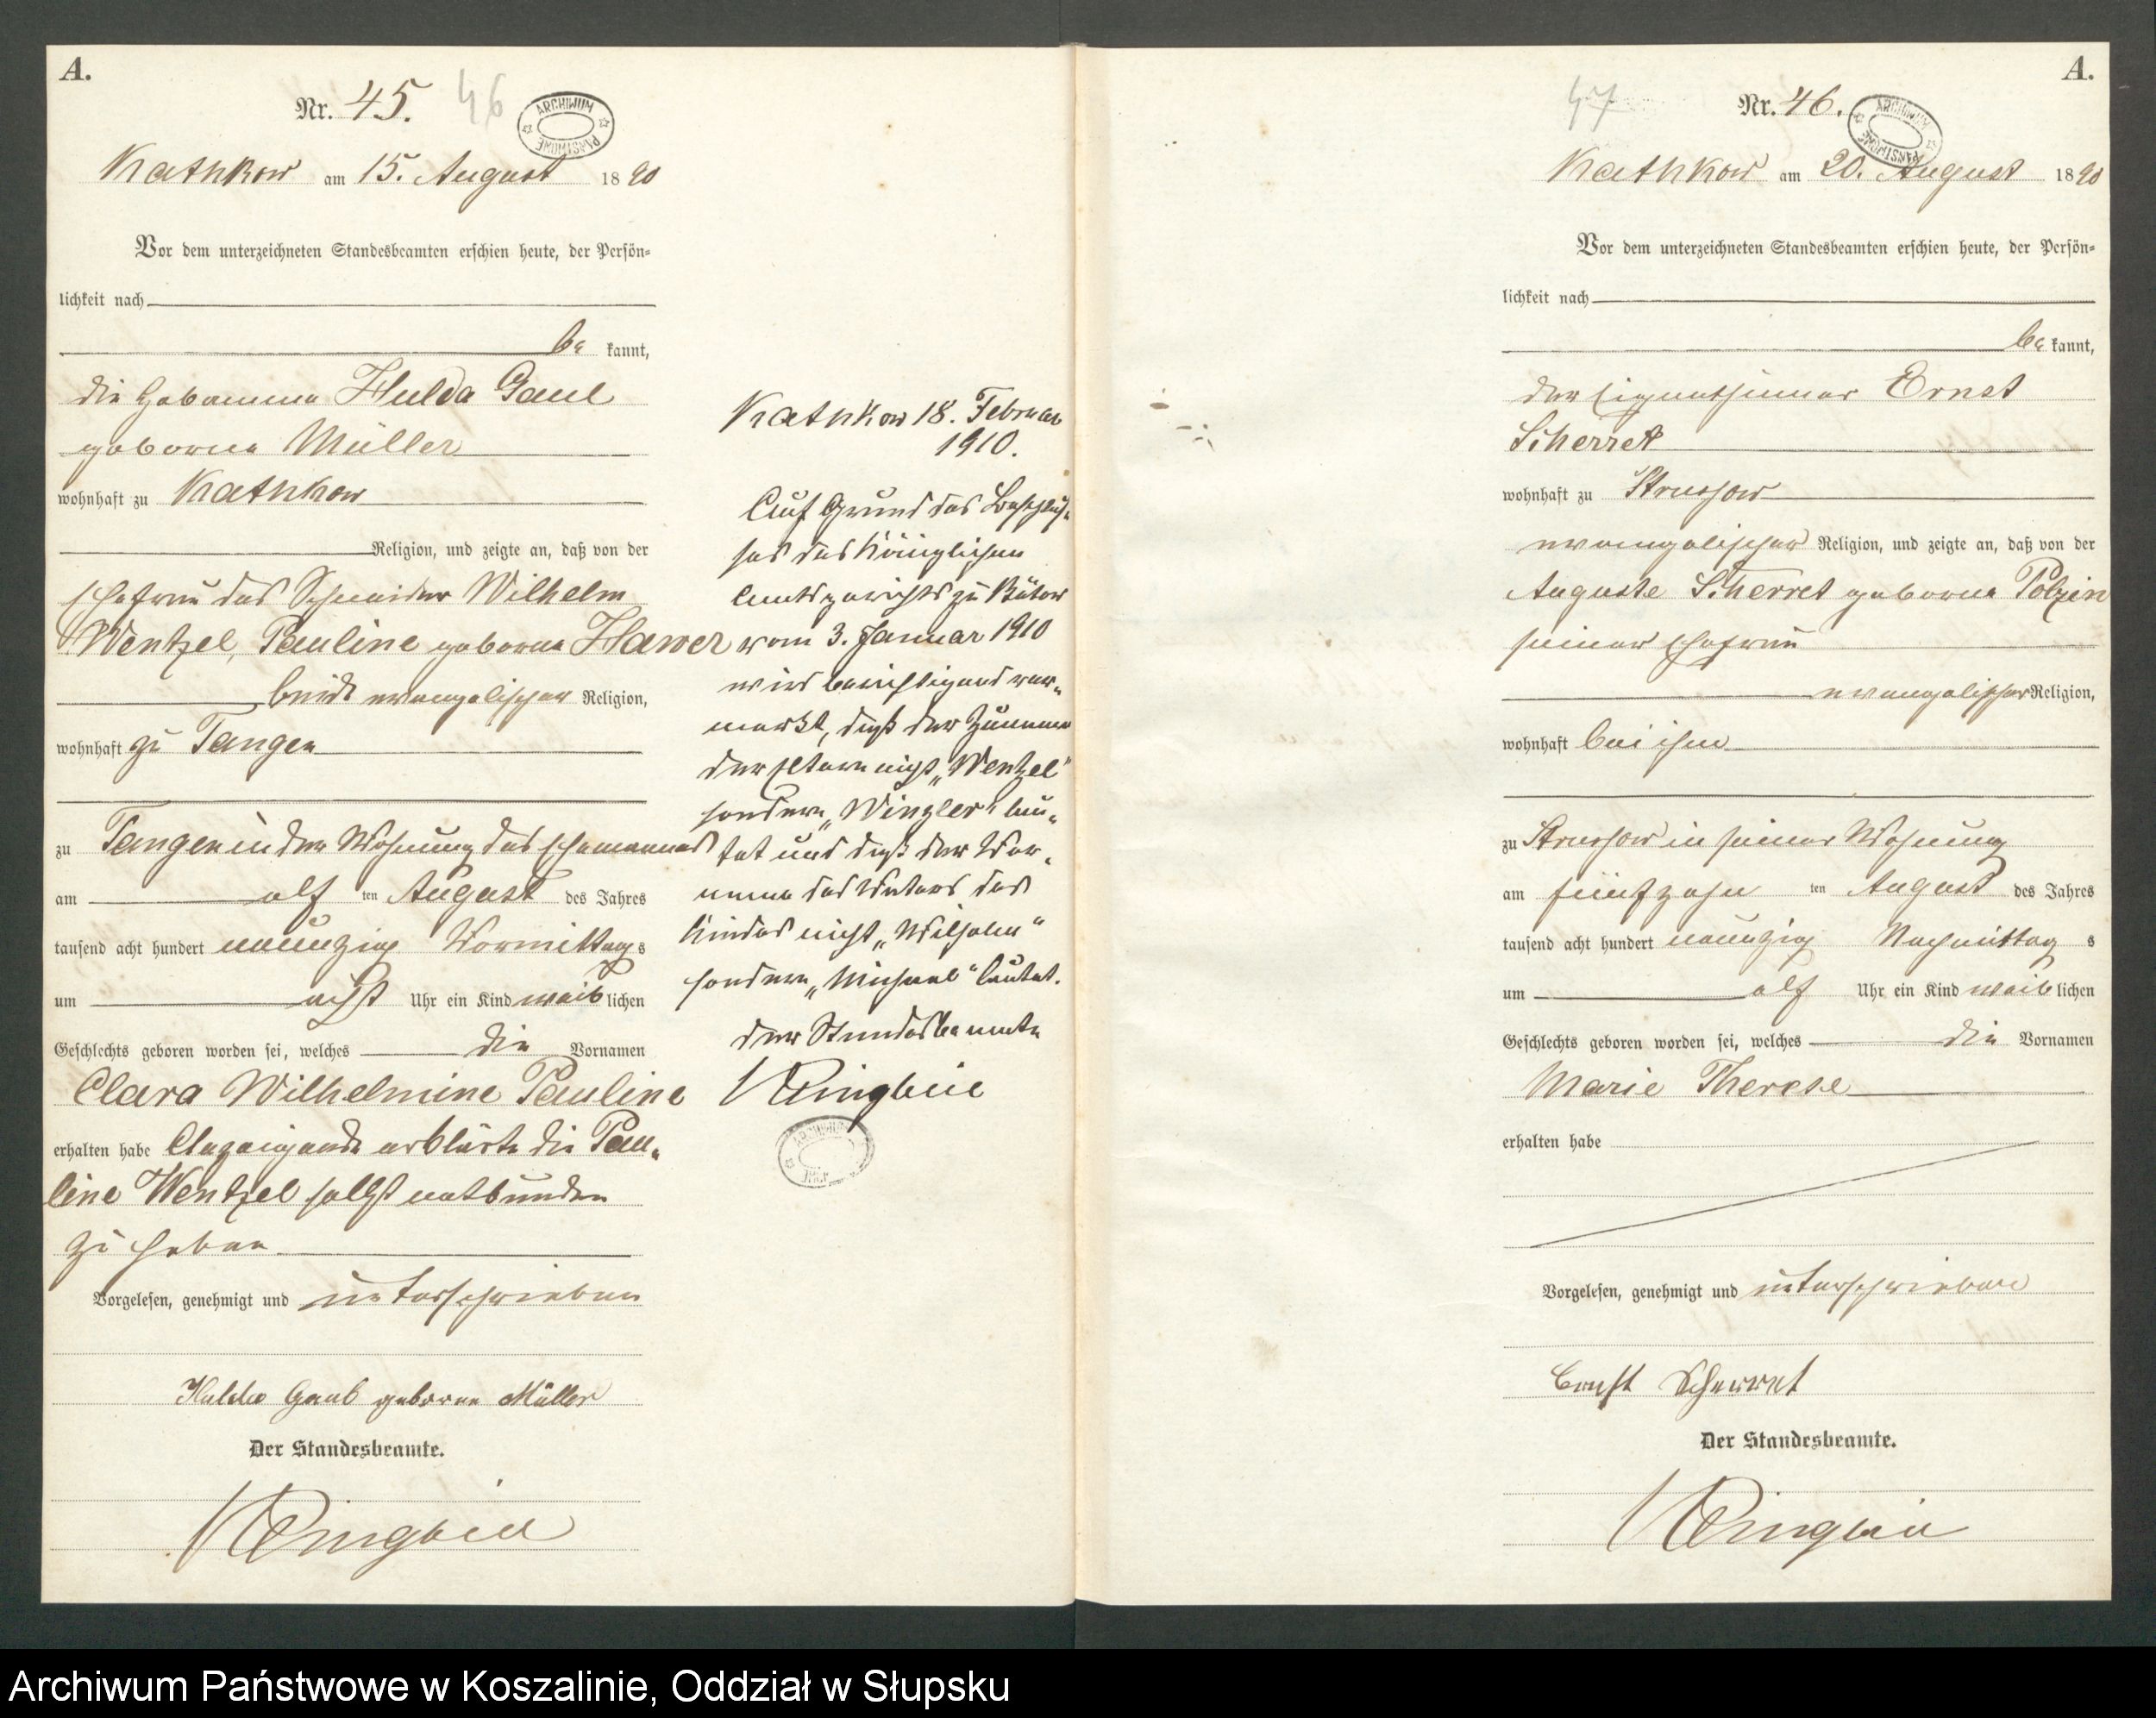 A.
Nr. 45. 46
ARCHIWUM PAŃSTWOWE
Kathkow am 15. August 1890
Vor dem unterzeichneten Standesbeamten erschien heute, der Persön-
lichkeit nach
be kannt,
die Hebamme Hulda Gaul
geborene Müller
wohnhaft zu Kathkow
Religion, und zeigte an, daß von der
Ehefrau des Schneider Wilhelm
Wentzel, Pauline geborne Hawer
beide evangelischer Religion,
wohnhaft zu Tangen
zu Tangen in der Wohnung des Ehemannes
am elf ten August des Jahres
tausend acht hundert neunzig Vormittags
um acht Uhr ein Kind weiblichen
Geschlechts geboren worden sei, welches die Vornamen
Clara Wilhelmine Pauline
erhalten habe Anzeigende erklärte die Pau-
line Wentzel selbst entbunden
zu haben
Vorgelesen, genehmigt und unterschrieben
Hulda Gaul geborne Müller
Der Standesbeamte.
Kathkow 18. Februar
1910.
Auf Grund des Beschlus-
ses des Königlichen
Amtsgerichts zu Bütow
vom 3. Januar 1910
wird berichtigend ver-
merkt, daß der Zuname
der Eltern nicht „Wentzel"
sondern „Winzler" lau-
tet und daß der Vor-
name des Vaters des
Kindes nicht „Wilhelm"
sondern „Michael" lautet.
der Standesbeamte
ARCHIWUM
A.
47 Nr. 46.
ARCHIWUM PAŃSTWOWE
Kathkow am 20. August 1890
Vor dem unterzeichneten Standesbeamten erschien heute, der Persön-
lichkeit nach
be kannt,
der Eigenthümer Ernst
Scherret
wohnhaft zu Strussow
evangelischer Religion, und zeigte an, daß von der
Auguste Scherret geborne Polzin
seiner Ehefrau
evangelischer Religion,
wohnhaft bei ihm
zu Strussow in seiner Wohnung
am fünfzehn ten August des Jahres
tausend acht hundert neunzig Nachmittag s
um elf Uhr ein Kind weiblichen
Geschlechts geboren worden sei, welches die Vornamen
Marie Therese
erhalten habe
Vorgelesen, genehmigt und unterschrieben
Ernst Scherret
Der Standesbeamte.
Archiwum Państwowe w Koszalinie, Oddział w Słupsku